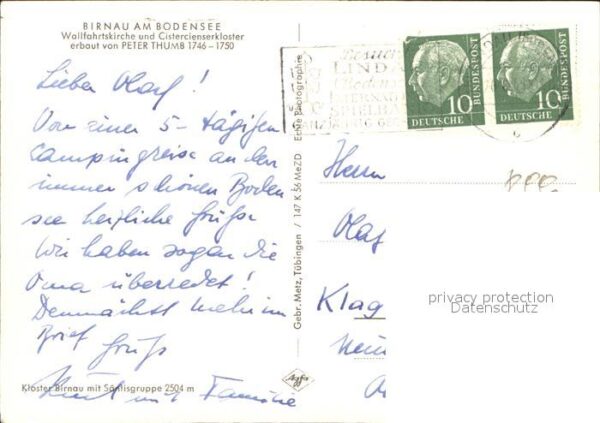 BIRNAU AM BODENSEE
Wallfahrtskirche und Cistercienserkloster
erbaut von PETER THUMB 1746–1750
Lieber Olaf!
Von einer 5-tägigen
Campingreise an den
immer schönen Boden
see herzliche Grüße
Wir haben sogar die
Oma überredet!
Demnächst mehr im
Brief
Gruß
Kurt und Familie
Kloster Birnau mit Säntisgruppe 2504 m
Gebr. Metz, Tübingen / 147 K 56 MeZD Echte Photographie
Agfa
Besuch
LINDA
SPIELBA
10
DEUTSCHE
BUNDESPOST
10
DEUTSCHE
BUNDESPOST
Herrn
Olaf
Klag
privacy protection
Datenschutz